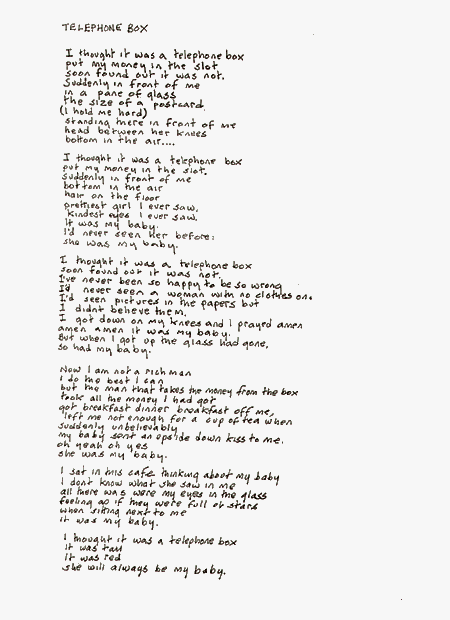 TELEPHONE BOX
I thought it was a telephone box
put my money in the slot
soon found out it was not.
Suddenly in front of me
in a pane of glass
the size of a postcard
(I hold me hard)
standing there in front of me
head between her knees
bottom in the air....
I thought it was a telephone box
put my money in the slot.
suddenly in front of me
bottom in the air
hair on the floor
prettiest girl I ever saw,
kindest eyes I ever saw.
it was my baby.
I'd never seen her before:
she was my baby.
I thought it was a telephone box
soon found out it was not.
I've never been so happy to be so wrong
I'd never seen a woman with no clothes on.
I'd seen pictures in the papers but
I didnt believe them.
I got down on my knees and I prayed amen
amen amen it was my baby.
But when I got up the glass had gone,
so had my baby.
Now I am not a rich man
I do the best I can
but the man that takes the money from the box
took all the money I had got
got breakfast dinner breakfast off me,
left me not enough for a cup of tea when
suddenly unbelievably
my baby sent an upside down kiss to me.
oh yeah oh yes
she was my baby.
I sat in this cafe thinking about my baby
I dont know what she saw in me
all there was were my eyes in the glass
feeling as if they were full of stars
when sitting next to me
it was my baby.
I thought it was a telephone box
it was tall
it was red
she will always be my baby.